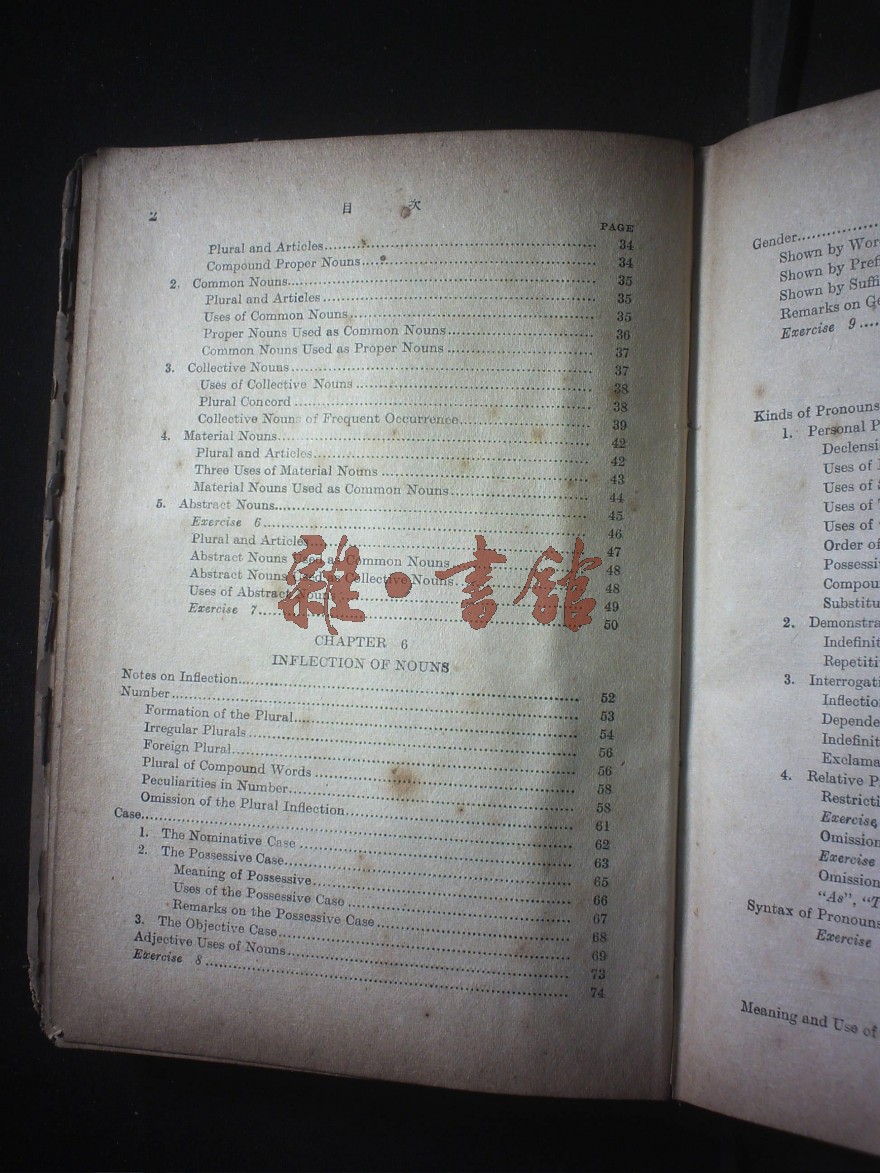 2
目 次
PAGE
Plural and Articles 34
Compound Proper Nouns 34
2. Common Nouns 35
Plural and Articles 35
Uses of Common Nouns 35
Proper Nouns Used as Common Nouns 36
Common Nouns Used as Proper Nouns 37
3. Collective Nouns 37
Uses of Collective Nouns 38
Plural Concord 38
Collective Nouns of Frequent Occurrence 39
4. Material Nouns 42
Plural and Articles 42
Three Uses of Material Nouns 43
Material Nouns Used as Common Nouns 44
5. Abstract Nouns 45
Exercise 6 46
Plural and Articles 47
Abstract Nouns Used as Common Nouns 48
Abstract Nouns Used as Collective Nouns 48
Uses of Abstract Nouns 49
Exercise 7 50
雜·書館
CHAPTER 6
INFLECTION OF NOUNS
Notes on Inflection 52
Number 53
Formation of the Plural 54
Irregular Plurals 56
Foreign Plural 56
Plural of Compound Words 58
Peculiarities in Number 58
Omission of the Plural Inflection 61
Case 62
1. The Nominative Case 63
2. The Possessive Case 65
Meaning of Possessive 66
Uses of the Possessive Case 67
Remarks on the Possessive Case 68
3. The Objective Case 69
Adjective Uses of Nouns 73
Exercise 8 74
Gender
Shown by
Shown by
Shown by
Remarks on
Exercise 9
Kinds of Pronouns
1. Personal
Uses of
Uses of
Uses of
Uses of
Order of
2.
3.
4. Relative
Exercise
Omission
Exercise
Omission
"As",
Syntax of Pronouns
Exercise
Meaning and Use of